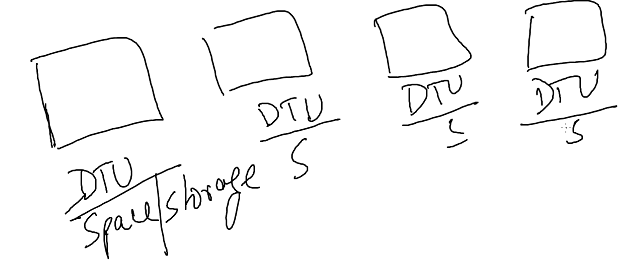 DTU
Space/Storage
DTU
S
DTU
S
DTU
S